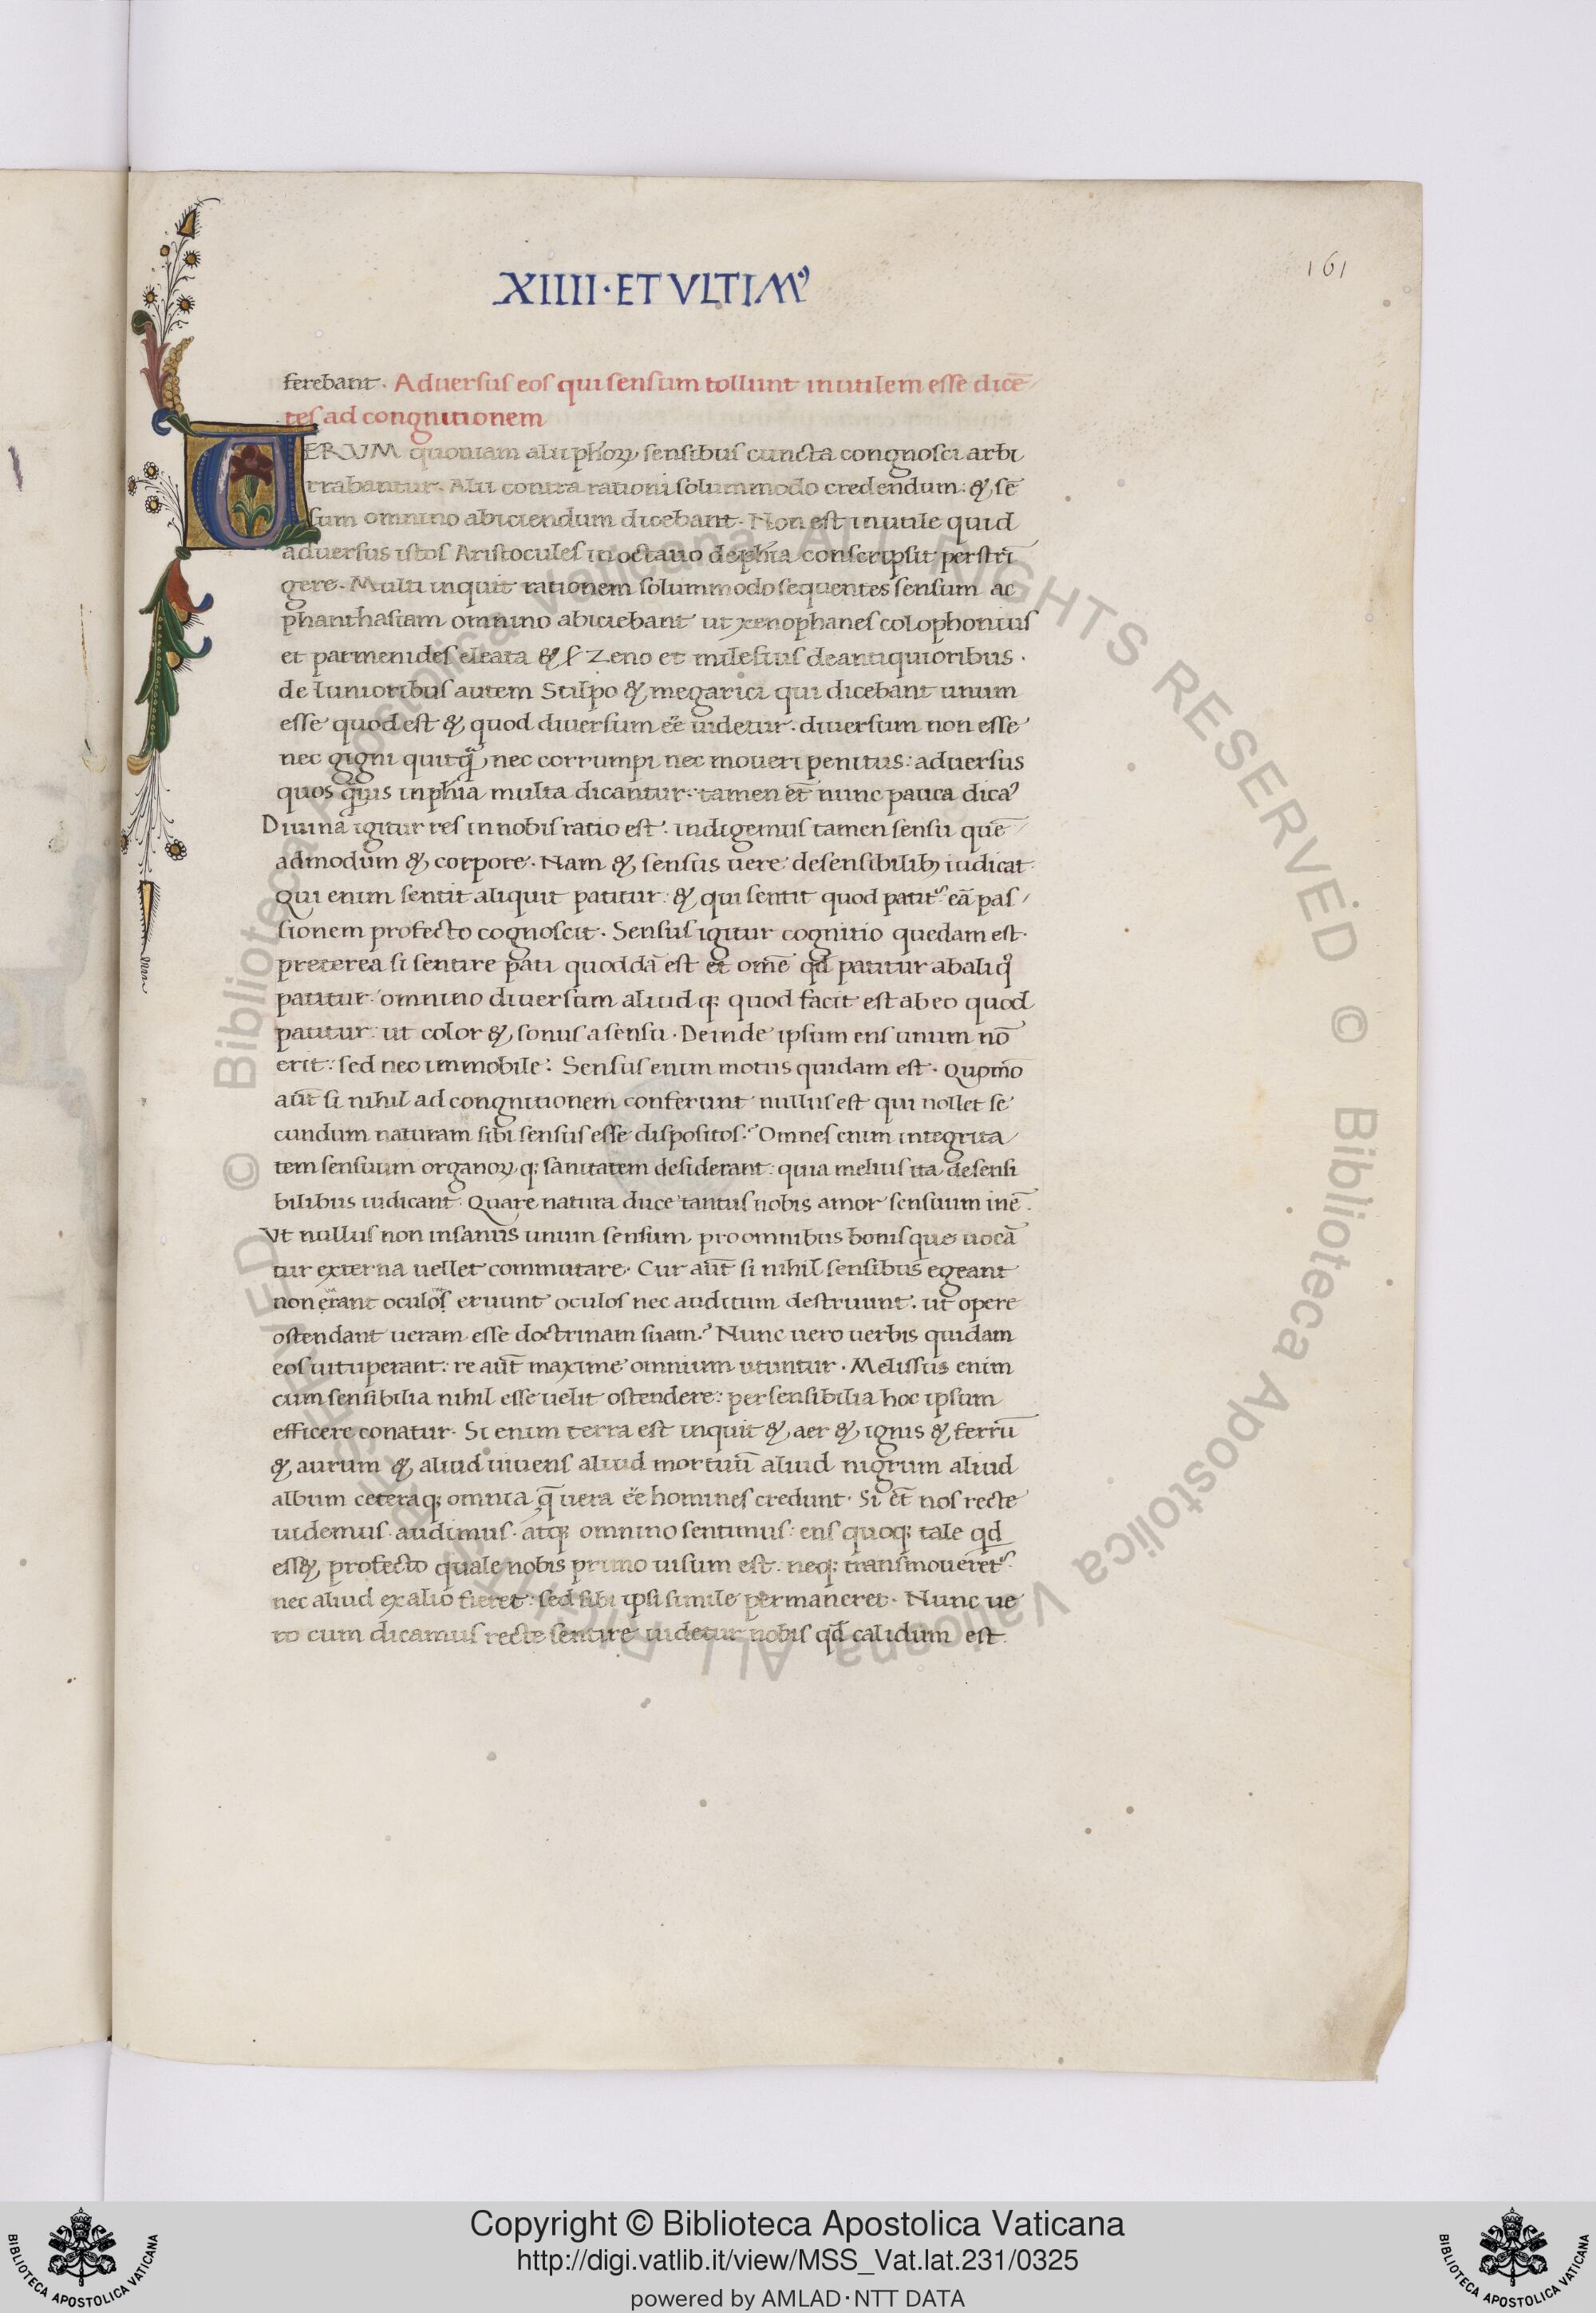 161
XIIII·ET VLTIMꝰ
ferebant. Aduersus eos qui sensum tollunt inutilem esse dicē
tes ad congnitionem
UERUM quoniam alii ph̄oꝝ sensibus cuncta congnosci arbi
trabantur. Alii contra rationi solummodo credendum: & sē
sum omnino abiciendum dicebant. Non est inutile quid
aduersus istos Aristocules in octauo de ph̄ia conscripsit perstrī
gere. Multi inquit rationem solummodo sequentes sensum ac
phanthasiam omnino abiciebant ut xenophanes colophonius
et parmenides eleata & Zeno et milesius de antiquioribus.
de Iunioribus autem Stilpo & megarici qui dicebant unum
esse quod est & quod diuersum eē uidetur. diuersum non esse
nec gigni quitq̄ nec corrumpi nec moueri penitus: aduersus
quos q̄uis in ph̄ia multa dicantur: tamen et̄ nunc pauca dicaꝰ
Diuina igitur res in nobis ratio est. indigemus tamen sensu quē
admodum & corpore. Nam & sensus uere de sensibilibꝫ iudicat
Qui enim sentit aliquit patitur: & qui sentit quod patit᷑ eā pas
sionem profecto cognoscit. Sensus igitur cognitio quedam est.
preterea si sentire pati quoddā est et om̄e qd̄ patitur ab aliqͦ
patitur: omnino diuersum aliud qꝫ quod facit est ab eo quod
patitur: ut color & sonus a sensu. Deinde ipsum ens unum nō
erit: sed nec immobile: Sensus enim motus quidam est. Quom̄o
aūt si nihil ad congnitionem conferunt nullus est qui nollet se
cundum naturam sibi sensus esse dispositos? Omnes enim integrita
tem sensuum organoꝝ qꝫ sanitatem desiderant: quia melius ita de sensi
bilibus iudicant. Quare natura duce tantus nobis amor sensuum inē.
Vt nullus non insanus unum sensum pro omnibus bonis que uocā
tur externa uellet commutare. Cur aūt si nihil sensibus egeant
non erant oculos eruunt oculos nec auditum destruunt. ut opere
ostendant ueram esse doctrinam suam? Nunc uero uerbis quidam
eos uituperant: re aūt maxime omnium utuntur. Melissus enim
cum sensibilia nihil esse uelit ostendere: per sensibilia hoc ipsum
efficere conatur. Si enim terra est inquit & aer & ignis & ferrū
& aurum & aliud uiuens aliud mortuū aliud nigrum aliud
album ceteraqꝫ omnia q̄ uera eē homines credunt. Si et̄ nos recte
uidemus. audimus. atqꝫ omnino sentimus: ens quoqꝫ tale qd̄
ess& profecto quale nobis primo uisum est. neqꝫ transmoueret᷑.
nec aliud ex alio fieret: sed sibi ipsi simile permaneret. Nunc ue
ro cum dicamus recte sentire uidetur nobis qd̄ calidum est
© Biblioteca Apostolica Vaticana ALL RIGHTS RESERVED
© Biblioteca Apostolica Vaticana ALL RIGHTS RESERVED
BIBLIOTECA APOSTOLICA VATICANA
Copyright © Biblioteca Apostolica Vaticana
http://digi.vatlib.it/view/MSS_Vat.lat.231/0325
powered by AMLAD·NTT DATA
BIBLIOTECA APOSTOLICA VATICANA